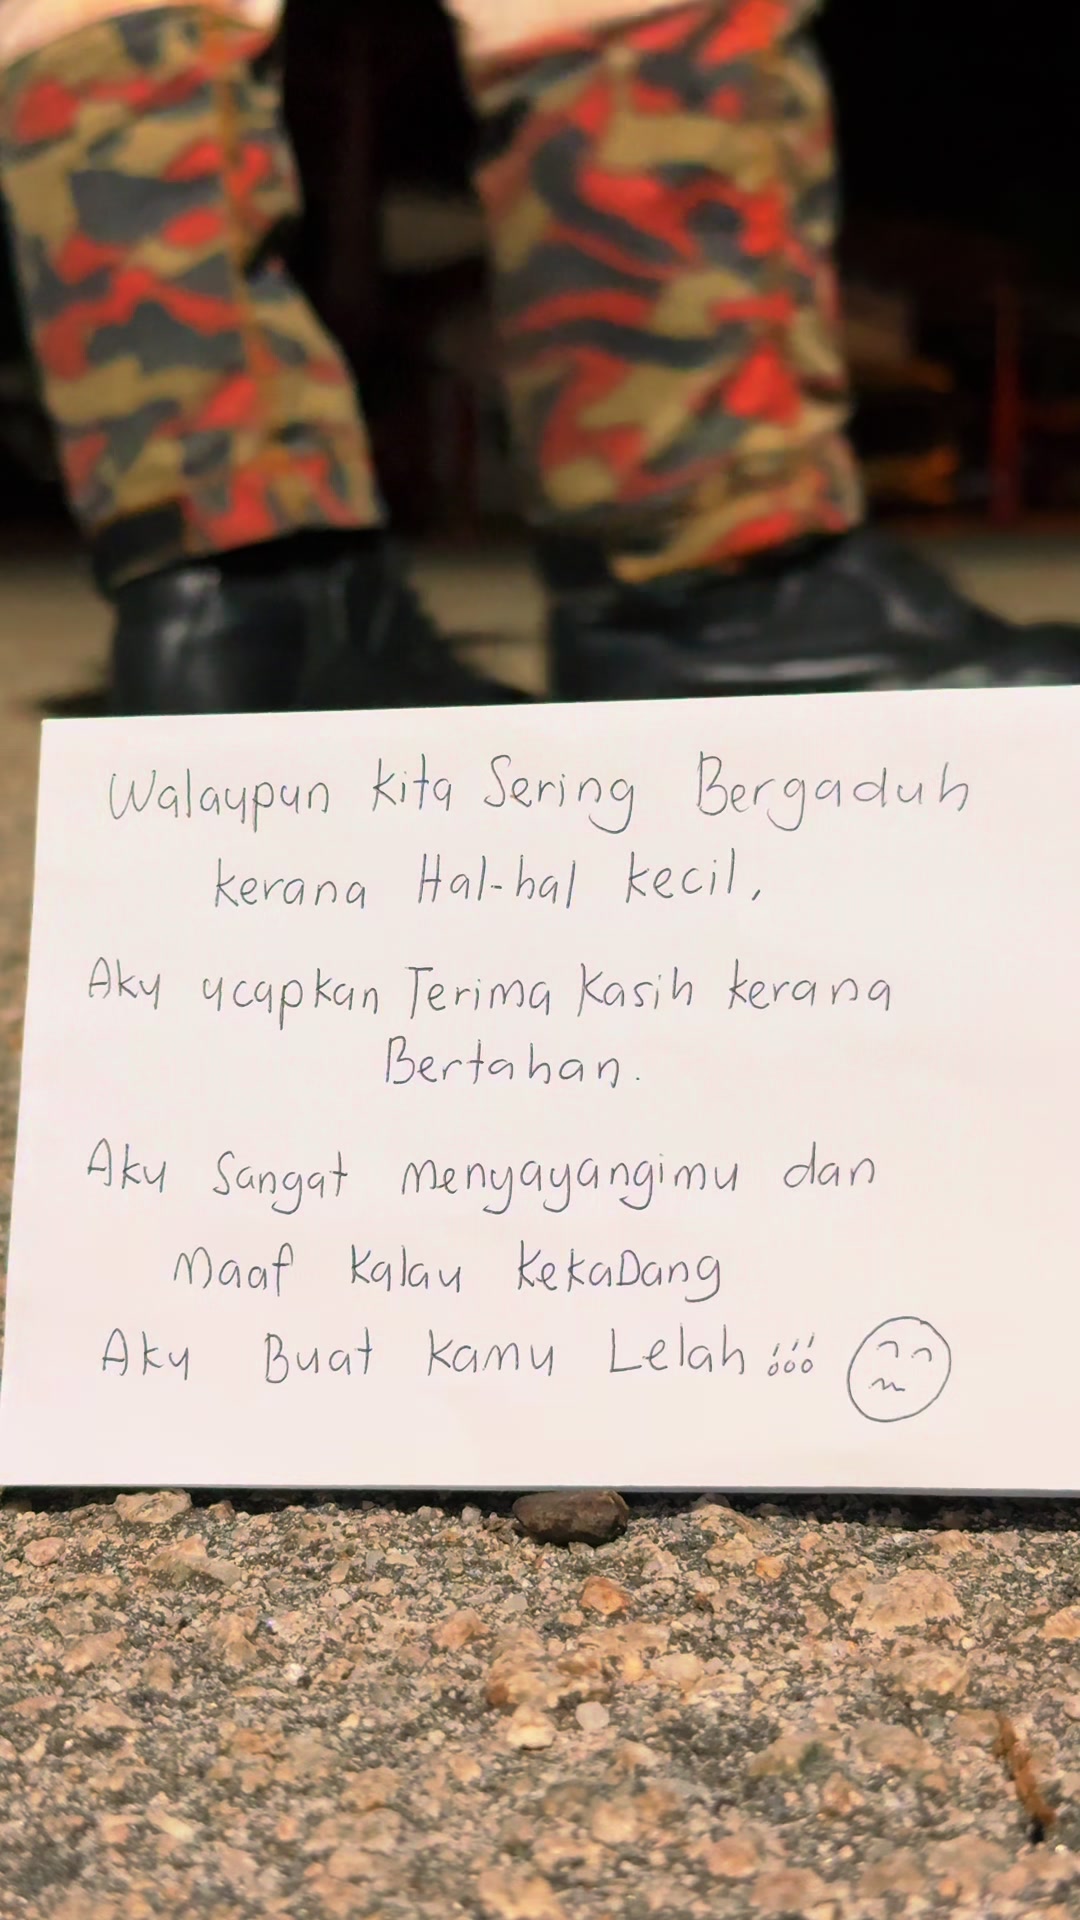 Walaupun kita Sering Bergaduh
kerana Hal-hal kecil,
Aku ucapkan Terima Kasih kerana
Bertahan.
Aku Sangat menyayangimu dan
Maaf Kalau KekaDang
Aku Buat Kamu Lelah !!!